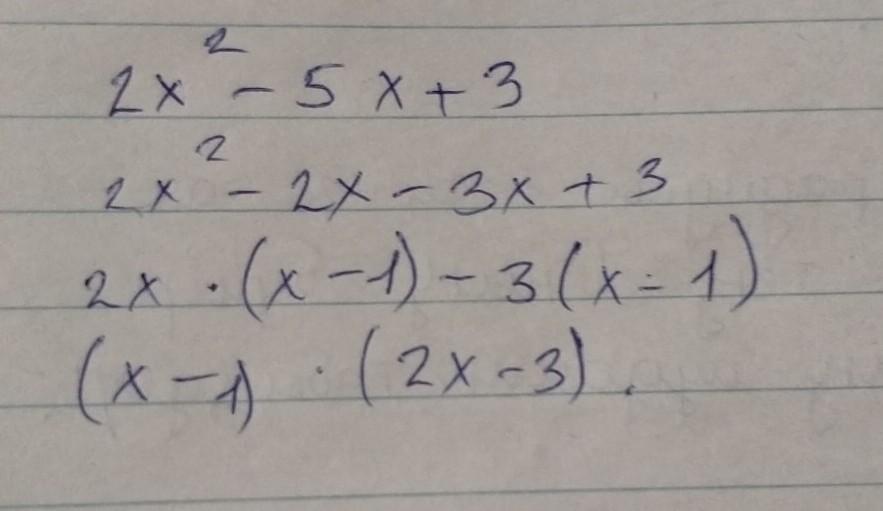 2x² - 5x + 3
2x² - 2x - 3x + 3
2x · (x - 1) - 3(x - 1)
(x - 1) · (2x - 3).